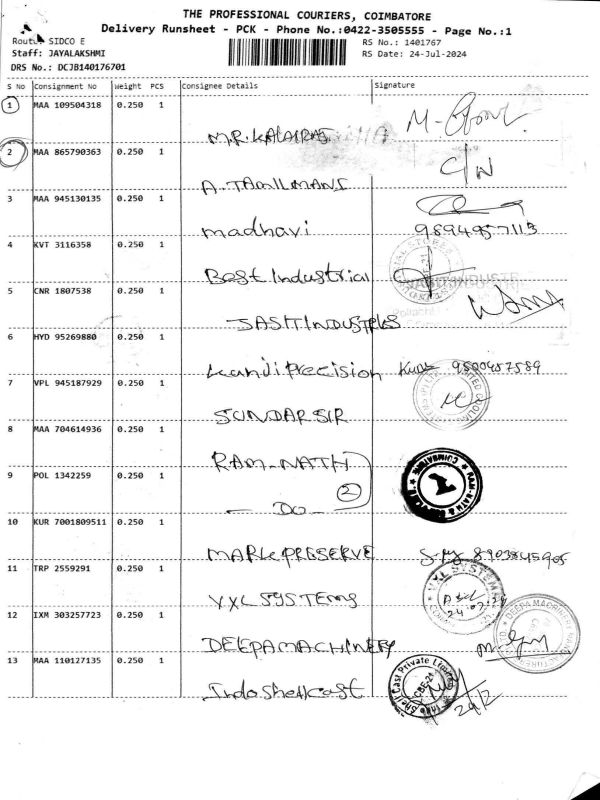 THE PROFESSIONAL COURIERS, COIMBATORE
Delivery Runsheet - PCK - Phone No.:0422-3505555 - Page No.:1
Route: SIDCO E
RS No.: 1401767
Staff: JAYALAKSHMI
RS Date: 24-Jul-2024
DRS No.: DCJB140176701
S No Consignment No Weight PCS Consignee Details Signature
1 MAA 109504318 0.250 1
M.R. KALAIRAJ
2 MAA 865790363 0.250 1
C/N
A. TAMILMANI
3 MAA 945130135 0.250 1
madhavi 9894957113
4 KVT 3116358 0.250 1
Best Industrial
5 CNR 1807538 0.250 1
JASIT INDUSTRIES
6 HYD 95269880 0.250 1
Kanji Precision 9500457589
7 VPL 945187929 0.250 1
SUNDAR SIR
8 MAA 704614936 0.250 1
RAM-NATH
9 POL 1342259 0.250 1
2
- DO -
10 KUR 7001809511 0.250 1
MARK PRESERVE 8903845905
11 TRP 2559291 0.250 1
VXL SYSTEMS
VXL SYSTEMS
12 IXM 303257723 0.250 1
DEEPA MACHINERY
DEEPA MACHINERY
13 MAA 110127135 0.250 1
Indo Shell Cast
Indo Shell Cast Private Limited
CBE-21